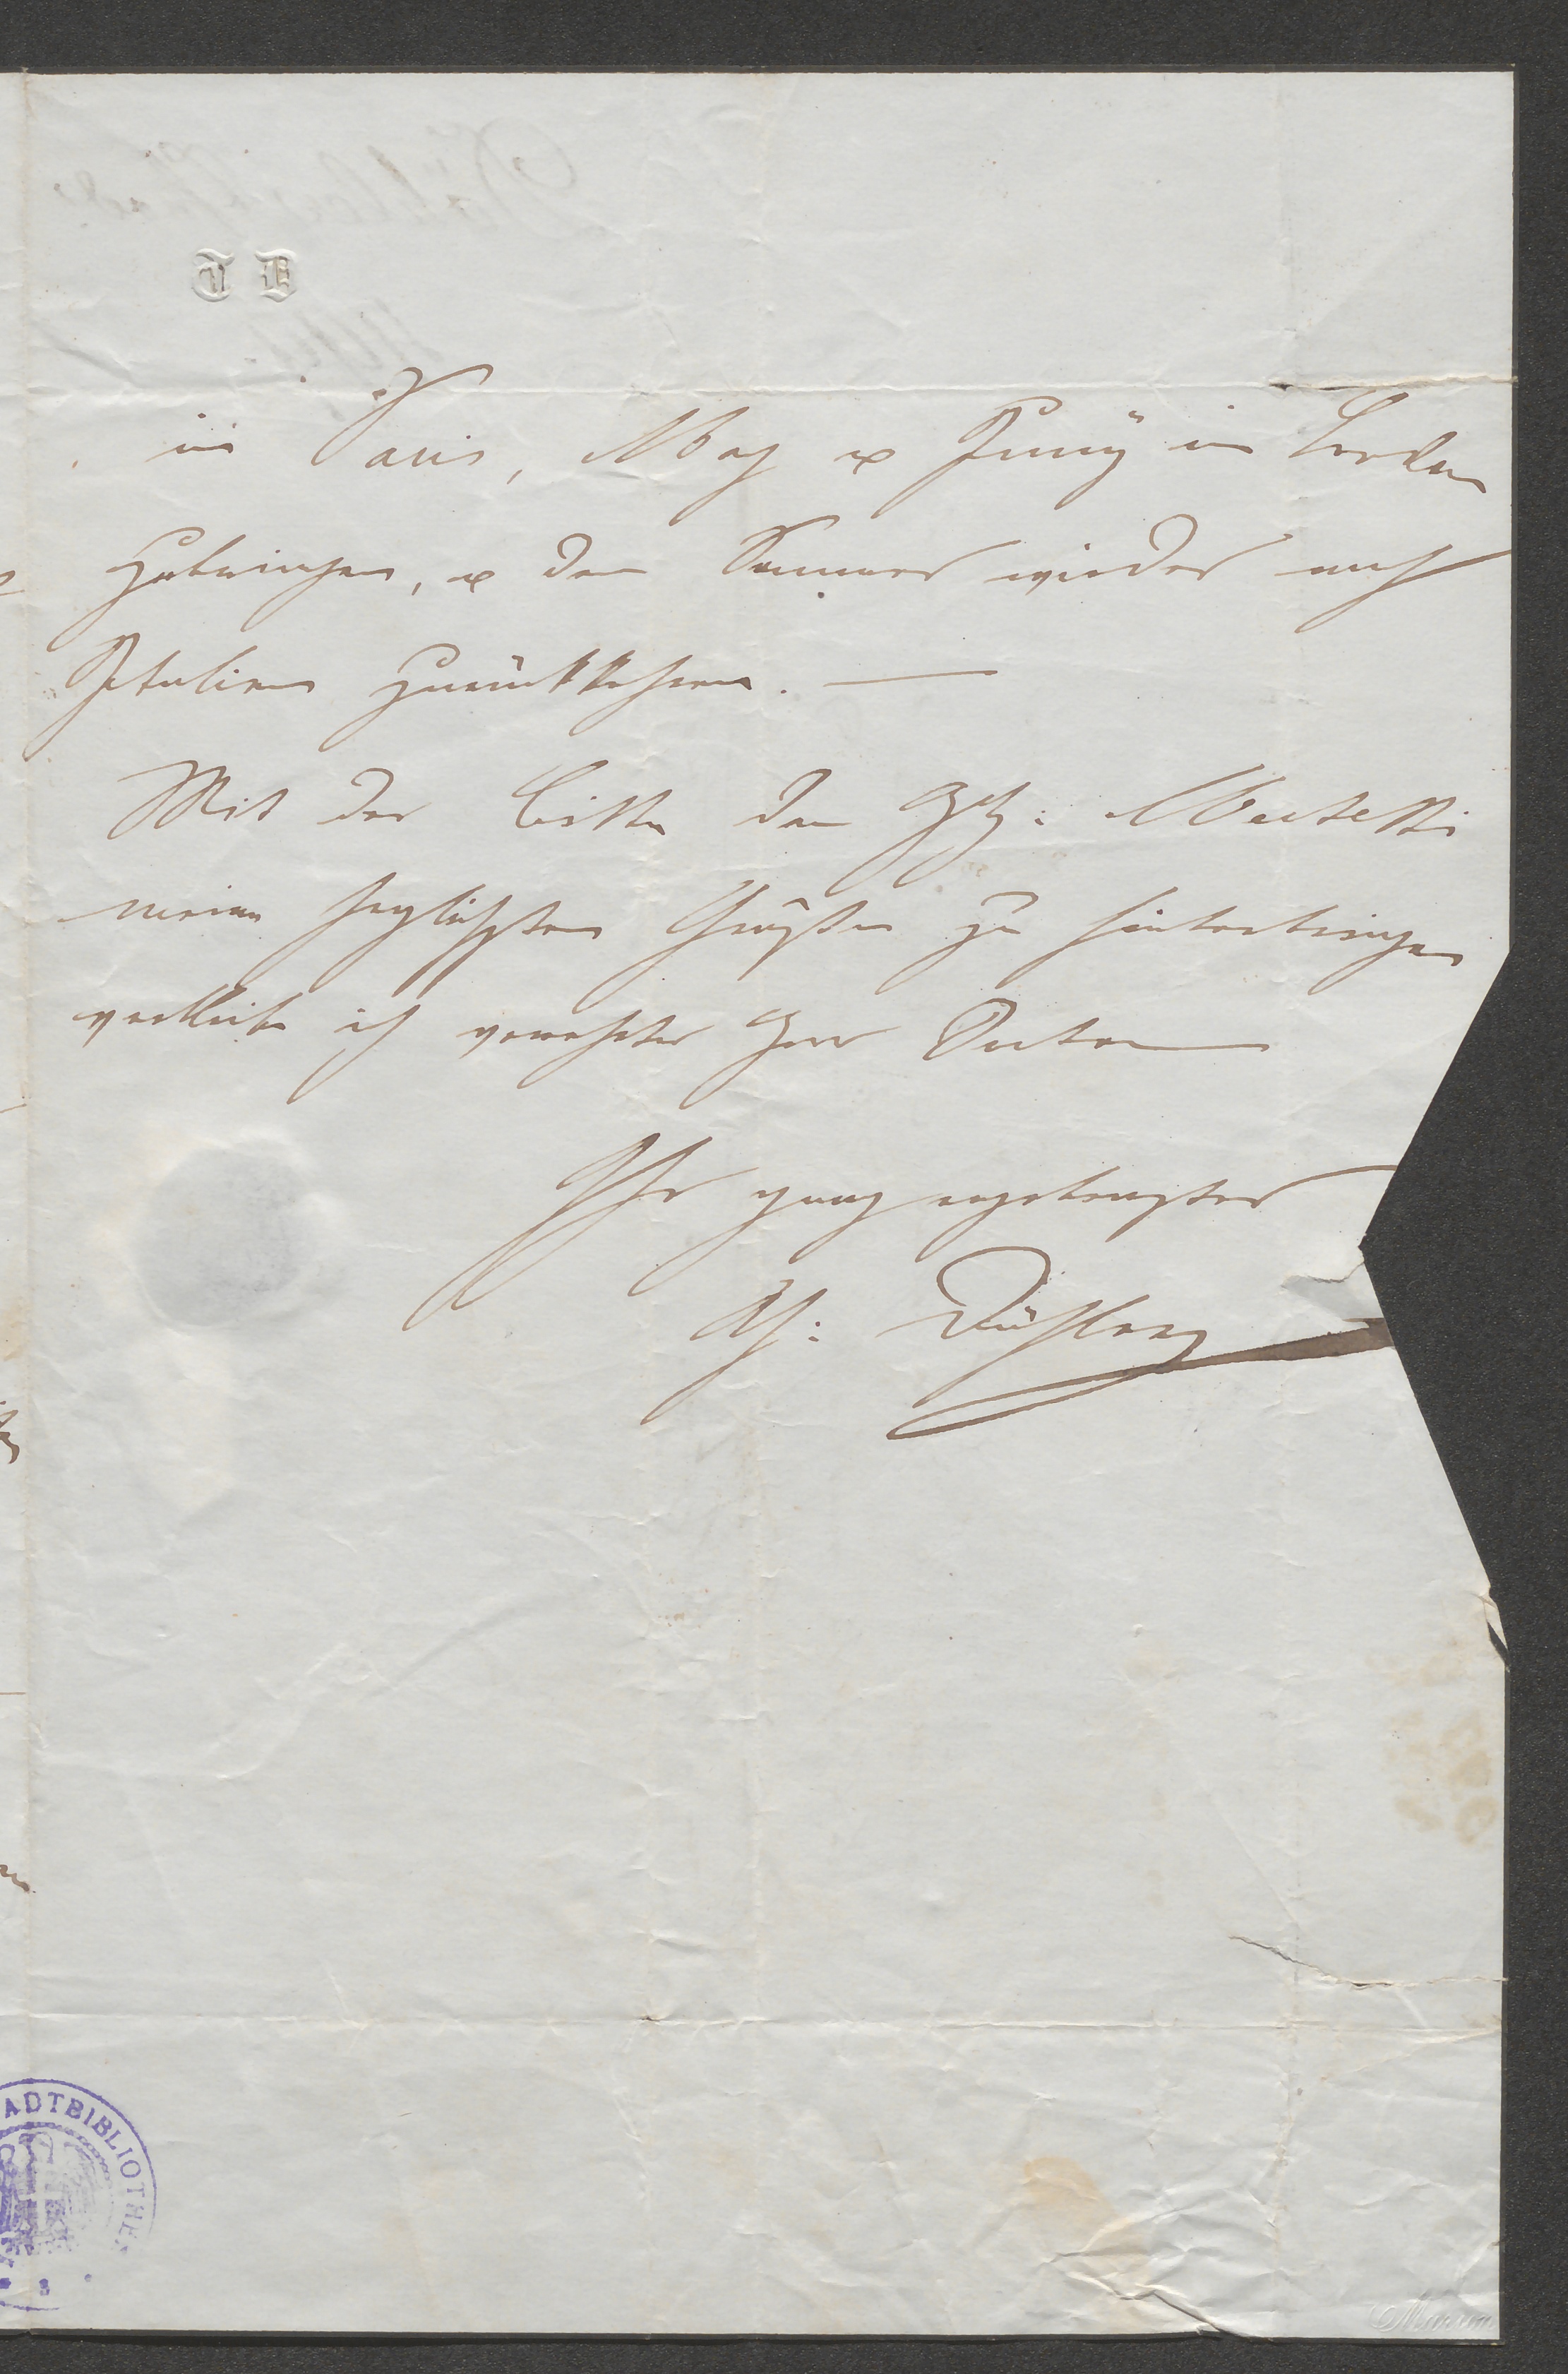 in Paris, May & Juny in London
zubringen, & den Sommer wieder nach
Italien zurückkehren. —
Mit der Bitte den H: Mechetti
meine herzlichsten Grüße zu hinterbringen
verbleibe ich verehrter Herr Doctor
Ihr ganz ergebenster
Th: Döhler
ADTBIBLIOTHEK